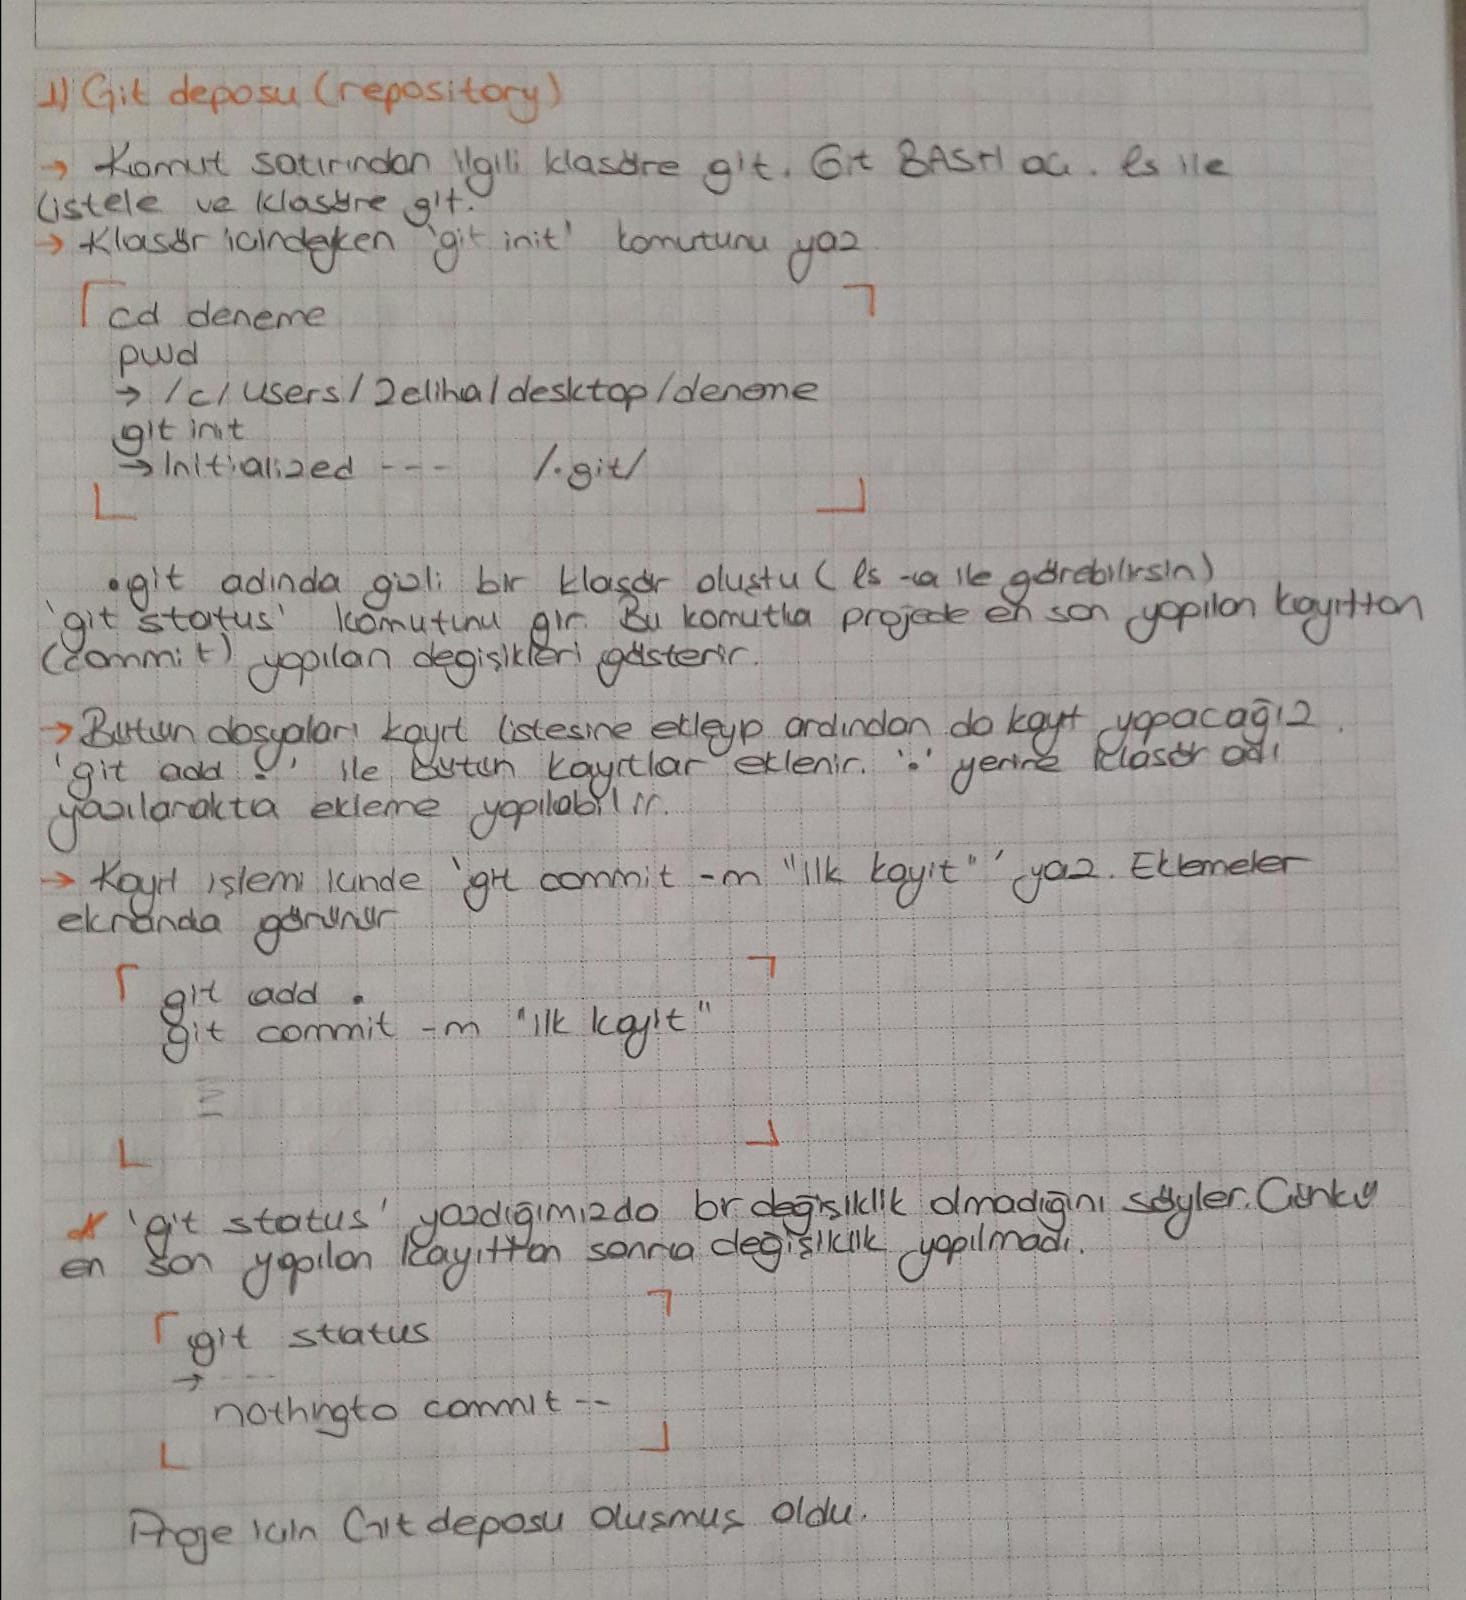 1) Git deposu (repository)
→ Komut satırından ilgili klasöre git. Git BASH aç. ls ile
listele ve klasöre git.
→ Klasör icindeyken 'git init' komutunu yaz
cd deneme
pwd
→ /c/users/zeliha/desktop/deneme
git init
→ Initialized --- /.git/
.git adında gizli bir klasör olustu ( ls -a ile görebilirsin)
'git status' komutunu gir. Bu komutla projede en son yapılan kayıttan
(commit) yapılan degisikleri gösterir.
→ Butun dosyaları kayıt listesine ekleyip ardından da kayıt yapacağız.
'git add .' ile butun kayıtlar eklenir. '.' yerine klasör adı
yazılarakta ekleme yapılabilir.
→ Kayıt islemi icinde 'git commit -m "ilk kayit"' yaz. Eklemeler
ekranda görünür
git add .
git commit -m "ilk kayit"
* 'git status' yazdığımızda bir değisiklik olmadığını söyler. Cünkü
en son yapılan kayıttan sonra değişiklik yapılmadı.
git status
→ ---
nothingto commit --
Proje icin Git deposu olusmus oldu.